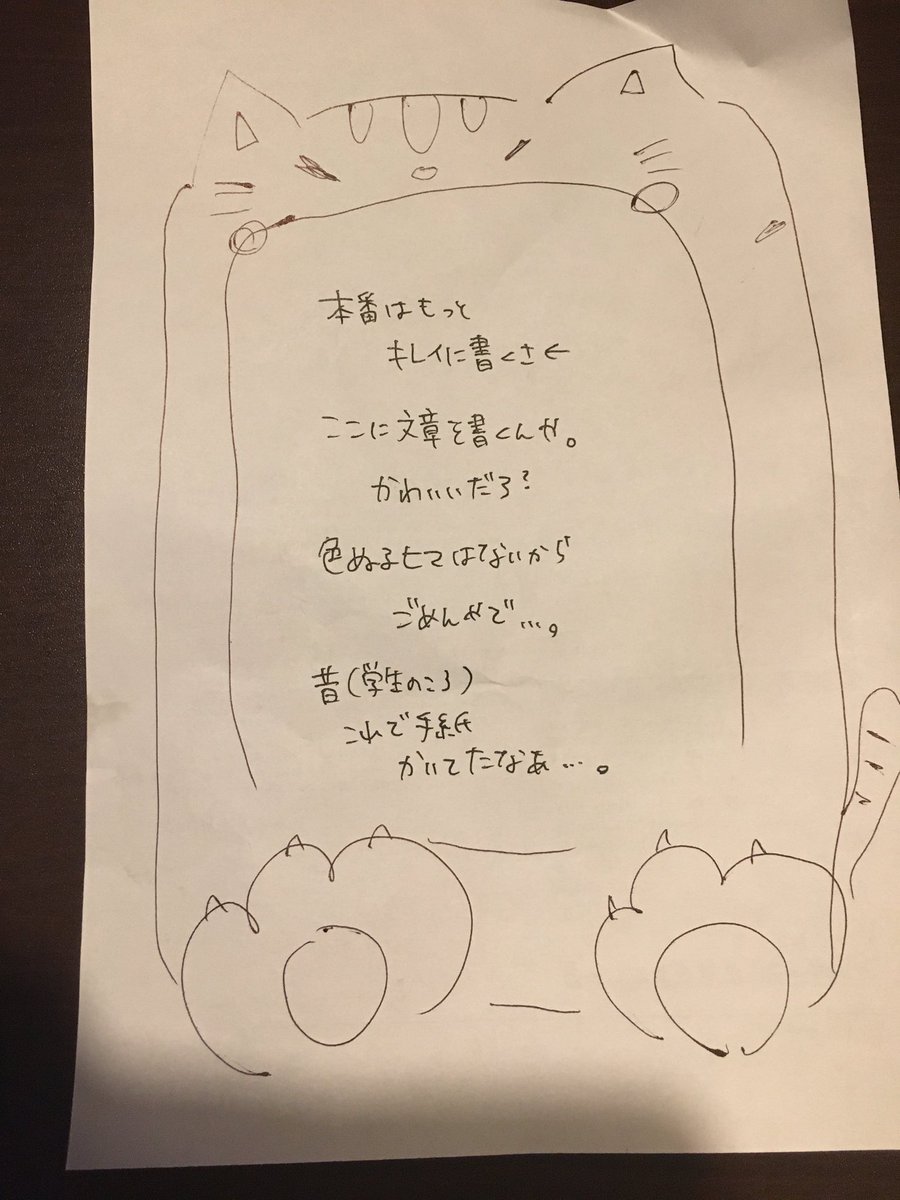 本番はもっと
キレイに書くさ←
ここに文章を書くんや。
かわいいだろ?
色ぬるヒマはないから
ごめんやで…。
昔(学生のころ)
これで手紙
かいてたなあ…。